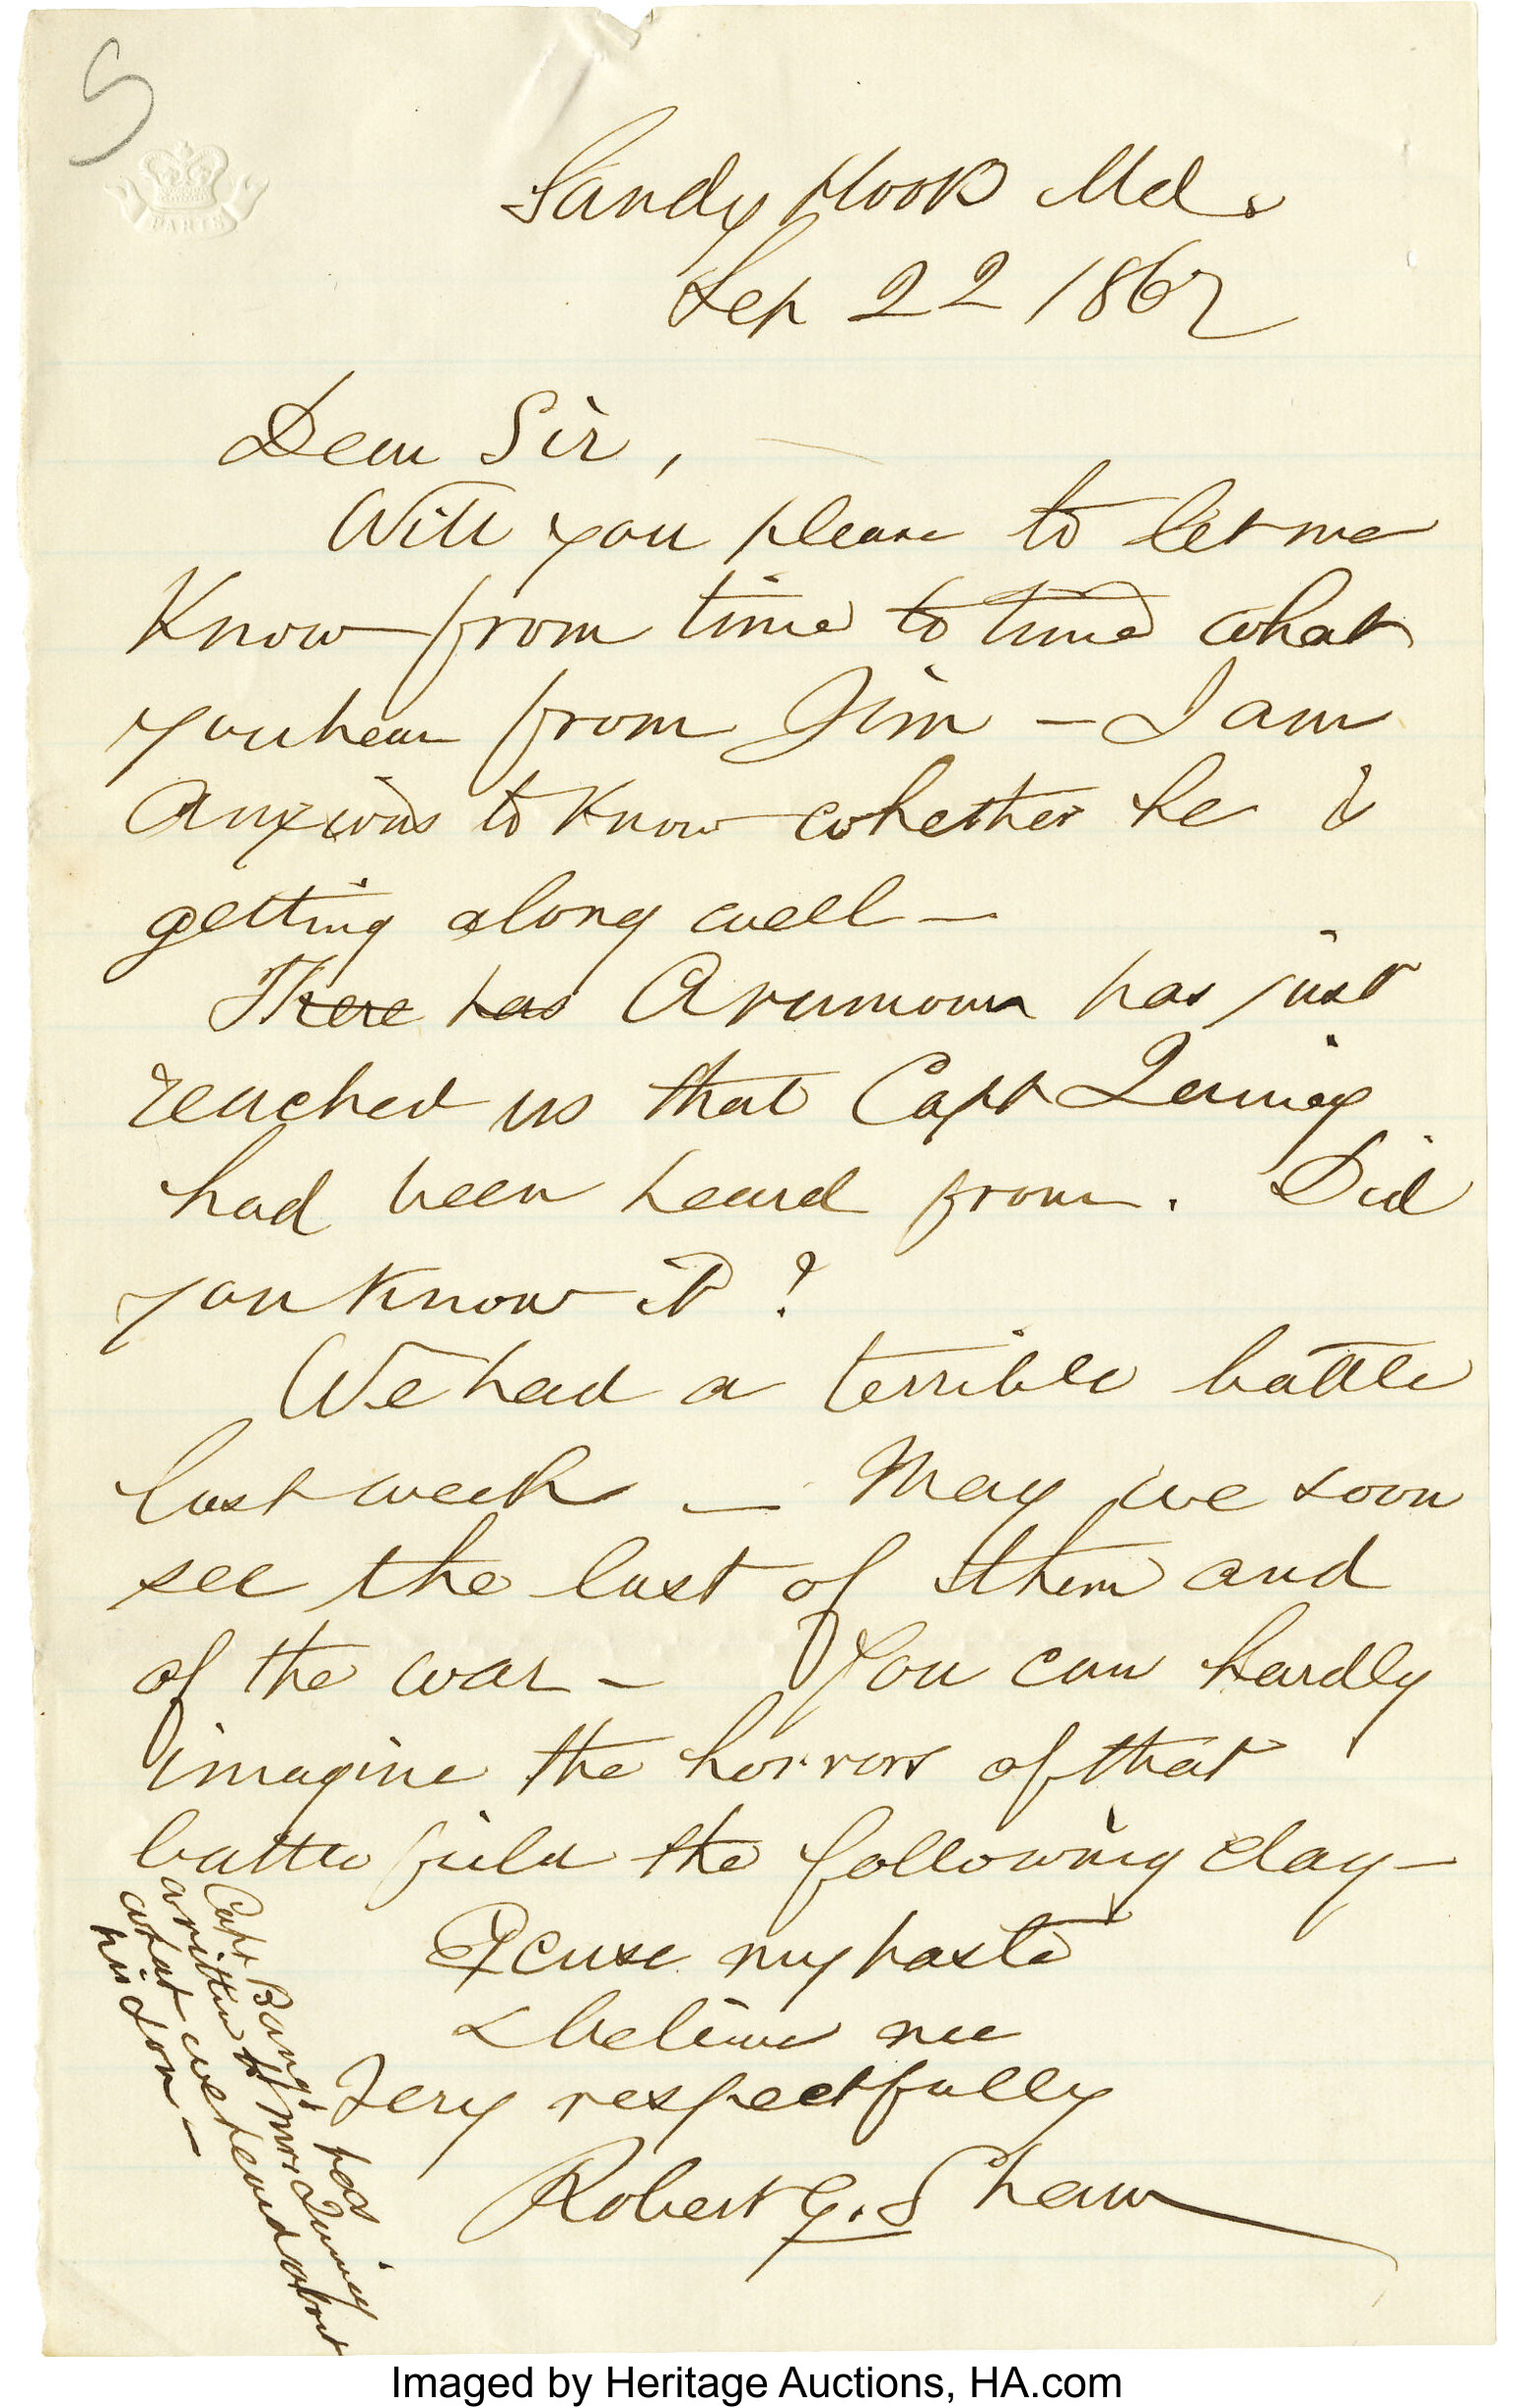 S
PARIS
Sandy Hook Md.
Sep 22 1862
Dear Sir,
Will you please to let me
know from time to time what
you hear from Jim – I am
anxious to know whether he is
getting along well –
There has A rumour has just
reached us that Capt Quincy
had been heard from. Did
you know it?
We had a terrible battle
last week – May we soon
see the last of them and
of the war – You can hardly
imagine the horrors of that
battle field the following day –
Excuse my haste
& believe me
Very respectfully
Robert G. Shaw
Capt Bangs has
written to Mr. Quincy
what we heard about
his son –
Imaged by Heritage Auctions, HA.com